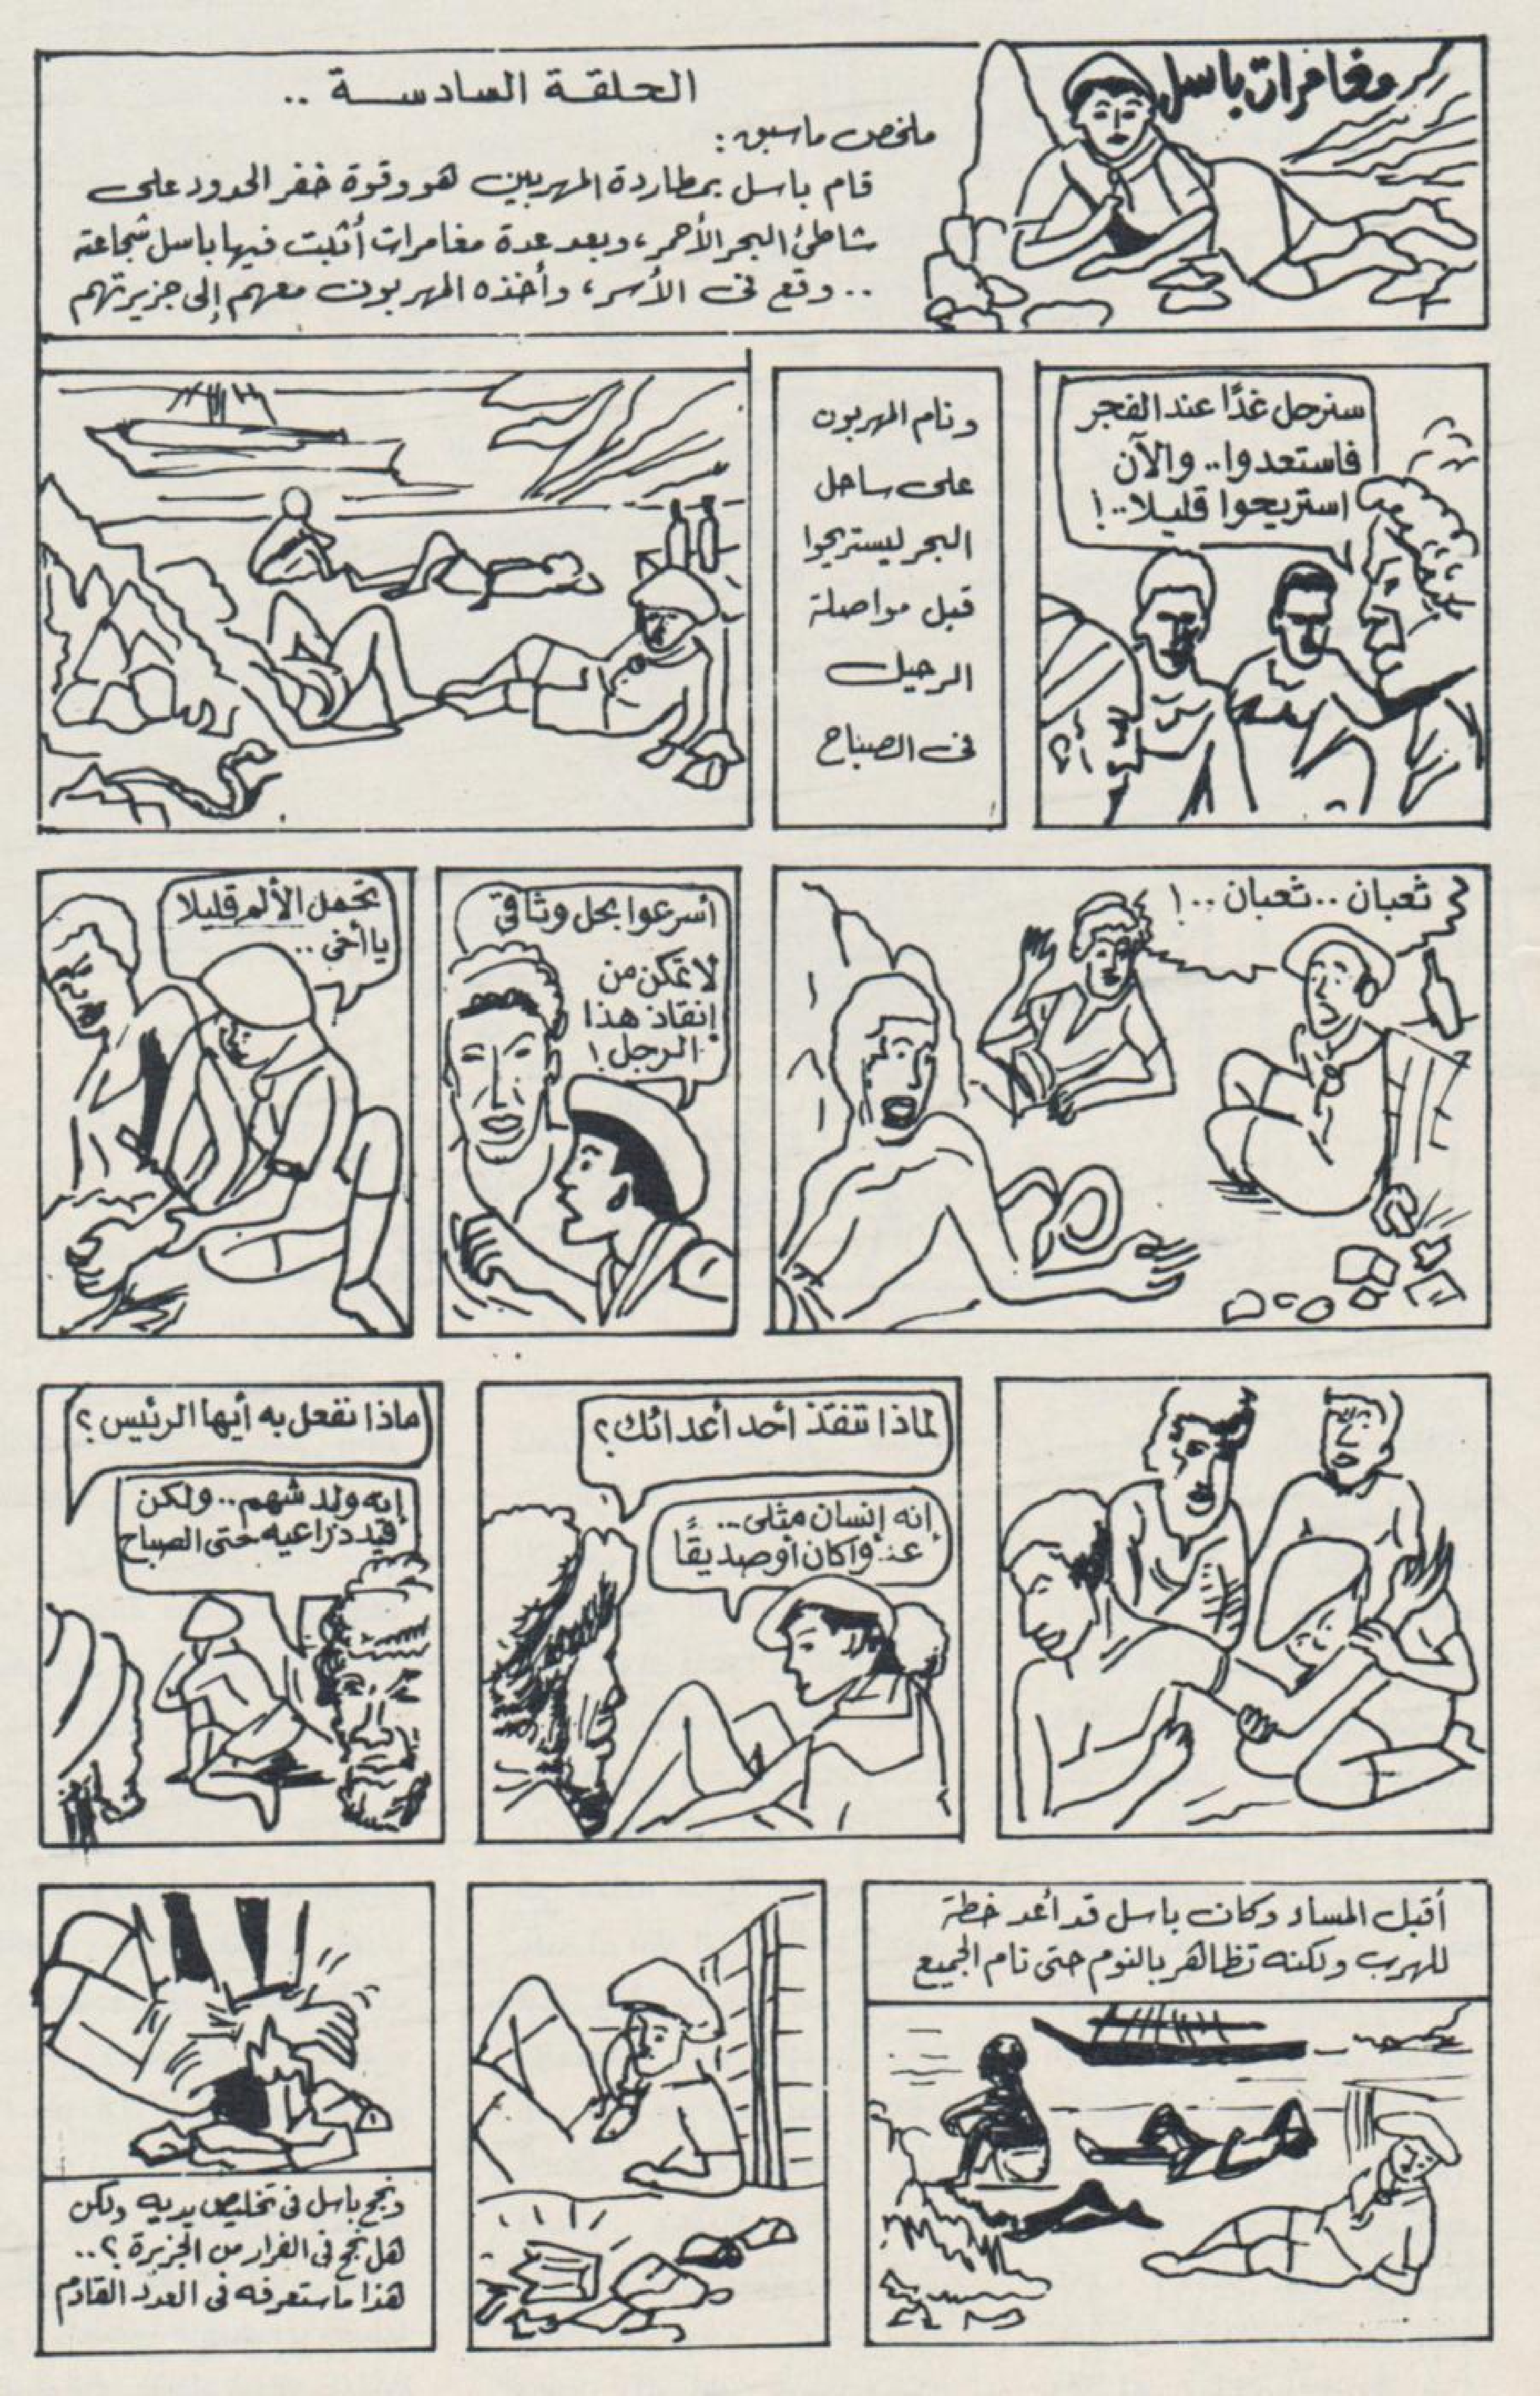 مغامرات باسل
الحلقة السادسة ..
ملخص ماسبق :
قام باسل بمطاردة المهربين هو وقوة خفر الحدود على
شاطئ البحر الأحمر، وبعد عدة مغامرات أثبت فيها باسل شجاعته
.. وقع فى الأسر، وأخذه المهربون معهم إلى جزيرتهم
سنرحل غدًا عند الفجر
فاستعدوا.. والآن
استريحوا قليلا..!
ونام المهربون
على ساحل
البحر ليستريحوا
قبل مواصلة
الرحيل
فى الصباح
ثعبان ..ثعبان ..!
أسرعوا بحل وثاقى
لأتمكن من
إنقاذ هذا
الرجل!
تحمل الألم قليلا
يا أخى ..
لماذا تنقذ أحد أعدائك؟
إنه إنسان مثلى...
عدوًا كان أو صديقًا
ماذا نفعل به أيها الرئيس؟
إنه ولد شهم.. ولكن
قيد ذراعيه حتى الصباح
أقبل المساء وكان باسل قد أعد خطة
للهرب ولكنه تظاهر بالنوم حتى نام الجميع
ونجح باسل فى تخليص يديه ولكن
هل نجح فى الفرار من الجزيرة ؟..
هذا ما ستعرفه فى العدد القادم